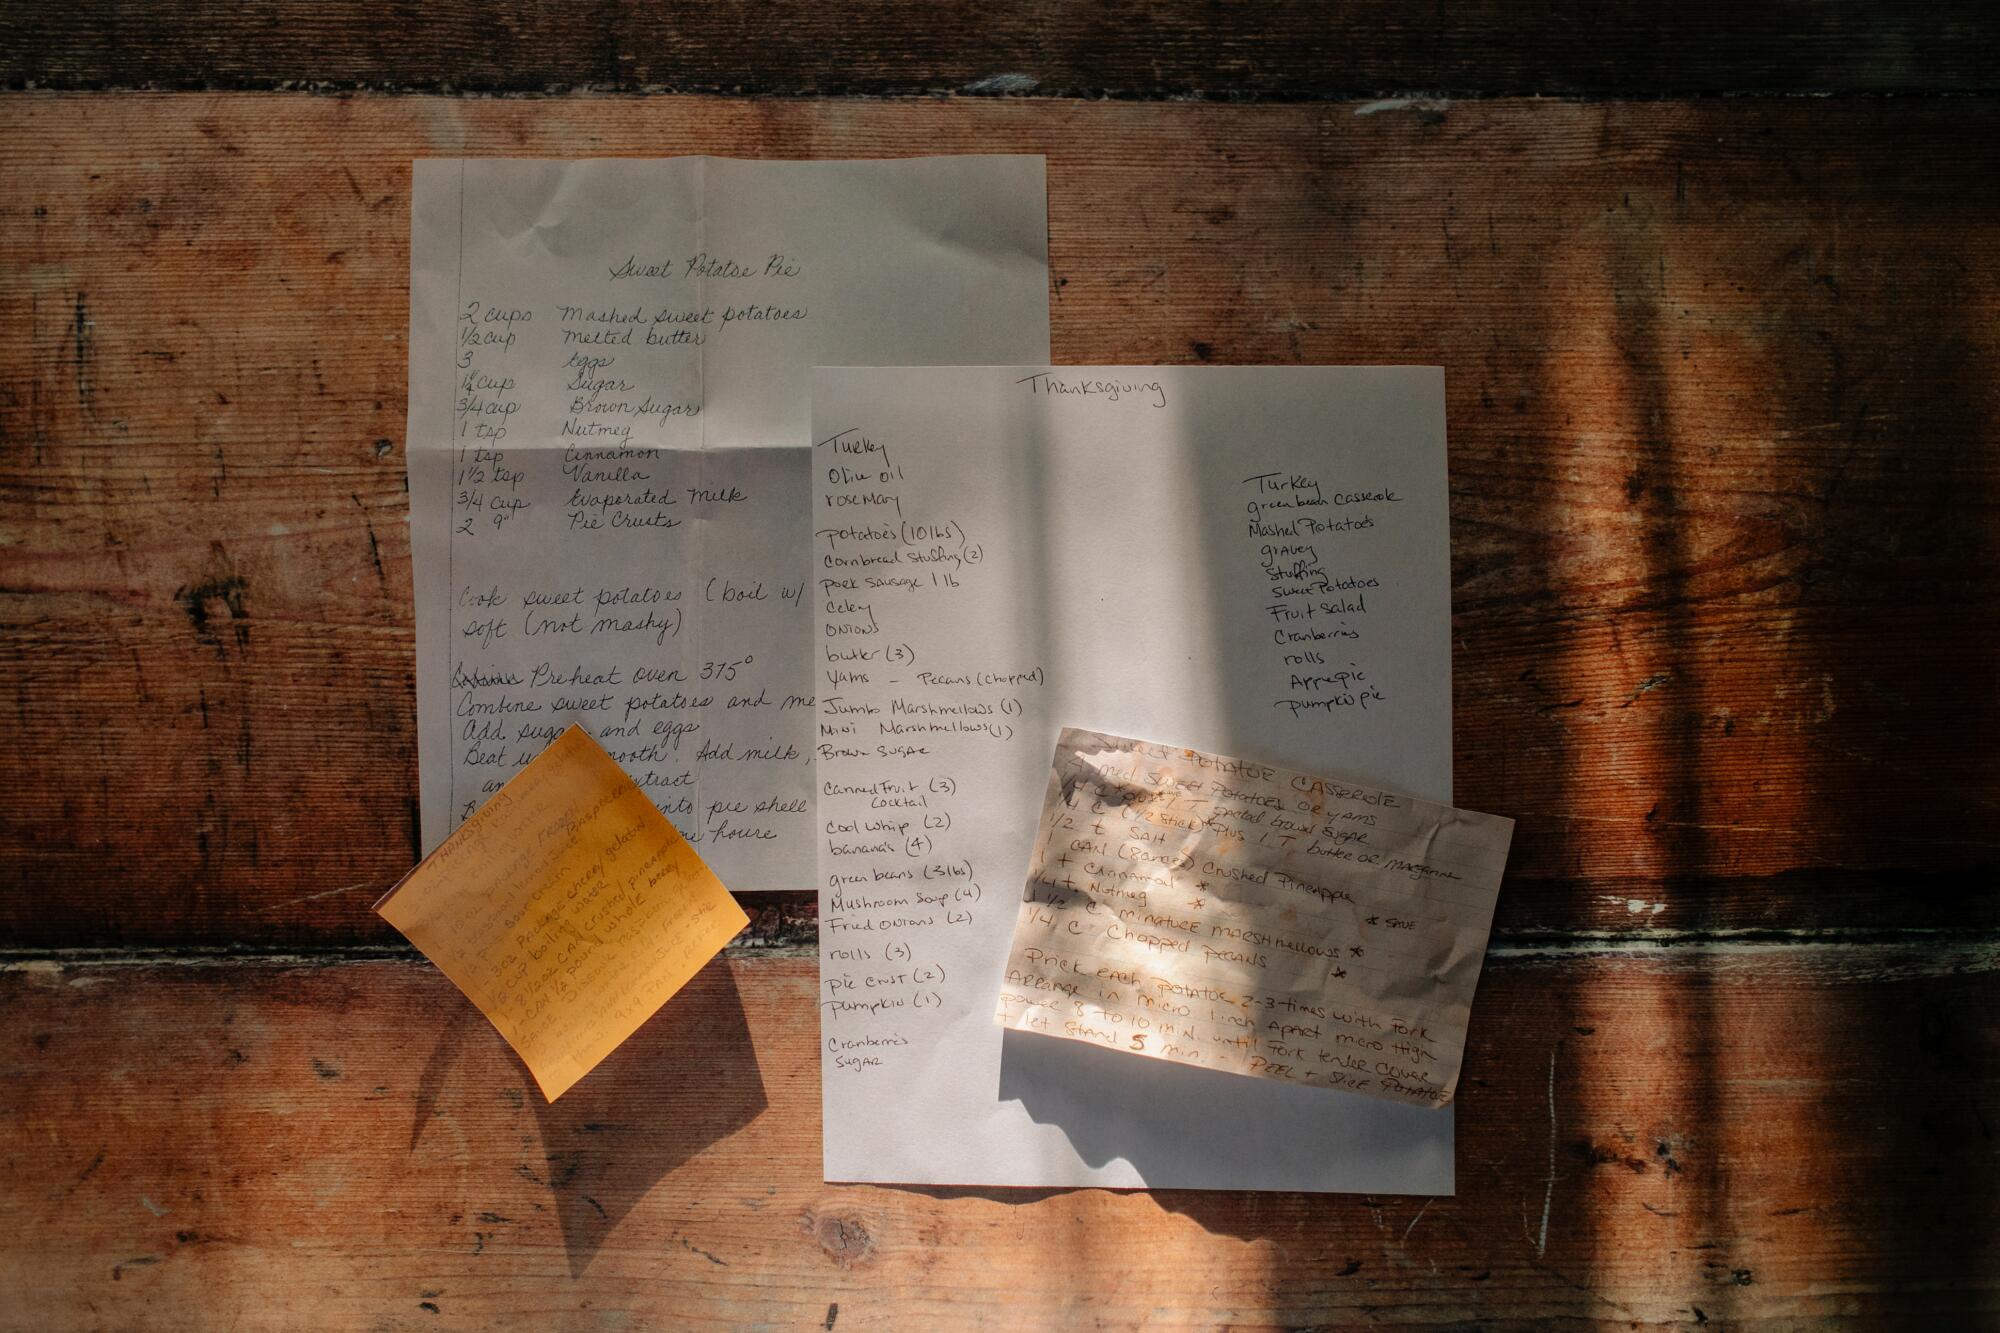 Sweet Potatoe Pie
2 cups Mashed sweet potatoes
1/2 cup Melted butter
3 Eggs
1 1/4 cup Sugar
3/4 cup Brown Sugar
1 tsp Nutmeg
1 tsp Cinnamon
1 1/2 tsp Vanilla
3/4 cup Evaporated Milk
2 9" Pie Crusts
Cook sweet potatoes (boil w/
soft (not mashy)
Preheat oven 375°
Combine sweet potatoes and me
Add sugar and eggs
Beat u mooth. Add milk,
an xtract
into pie shell
houre
Thanksgiving
Turkey
Olive oil
rosemary
potatoes (10 lbs)
Cornbread Stuffing (2)
pork sausage 1 lb
Celey
ONIONS
butter (3)
Yams - Pecans (chopped)
Jumbo Marshmellows (1)
Mini Marshmellows (1)
Brown Sugar
Canned Fruit (3)
Cocktail
Cool Whip (2)
banana's (4)
green beans (3 lbs)
Mushroom Soup (4)
Fried Onions (2)
rolls (3)
pie crust (2)
pumpkin (1)
Cranberries
Sugar
Turkey
green bean Casserole
Mashed Potatoes
gravey
Stuffing
Sweet Potatoes
Fruit Salad
Cranberries
rolls
Apple pie
pumpkin pie
SWEET POTATOE CASSEROLE
4 med SWEET POTATOES OR YAMS
1/4 C plus 1 T packed brown sugar
1/4 C (1/2 stick) Plus 1 T butter or margarine
1/2 t SAlt
1 CAN (8 ounces) Crushed Pineapple
1 t Cinnamon *
1/4 t. Nutmeg * * SAVE
1 1/2 C minature marshmellows *
1/4 C Chopped pecans *
Prick each potatoe 2-3 times with fork
Arrange in micro 1 inch Apart micro High
power 8 to 10 min. until fork tender cover
+ let stand 5 min. - PEEL + Slice POTATOE
Thanksgiving
sour cream
3 oz package cherry gelatin
1/2 cup boiling water
1 - 8 1/2 oz CAN crushed pineapple
1 - CAN 1/2 pound whole berry
9x9 PAN